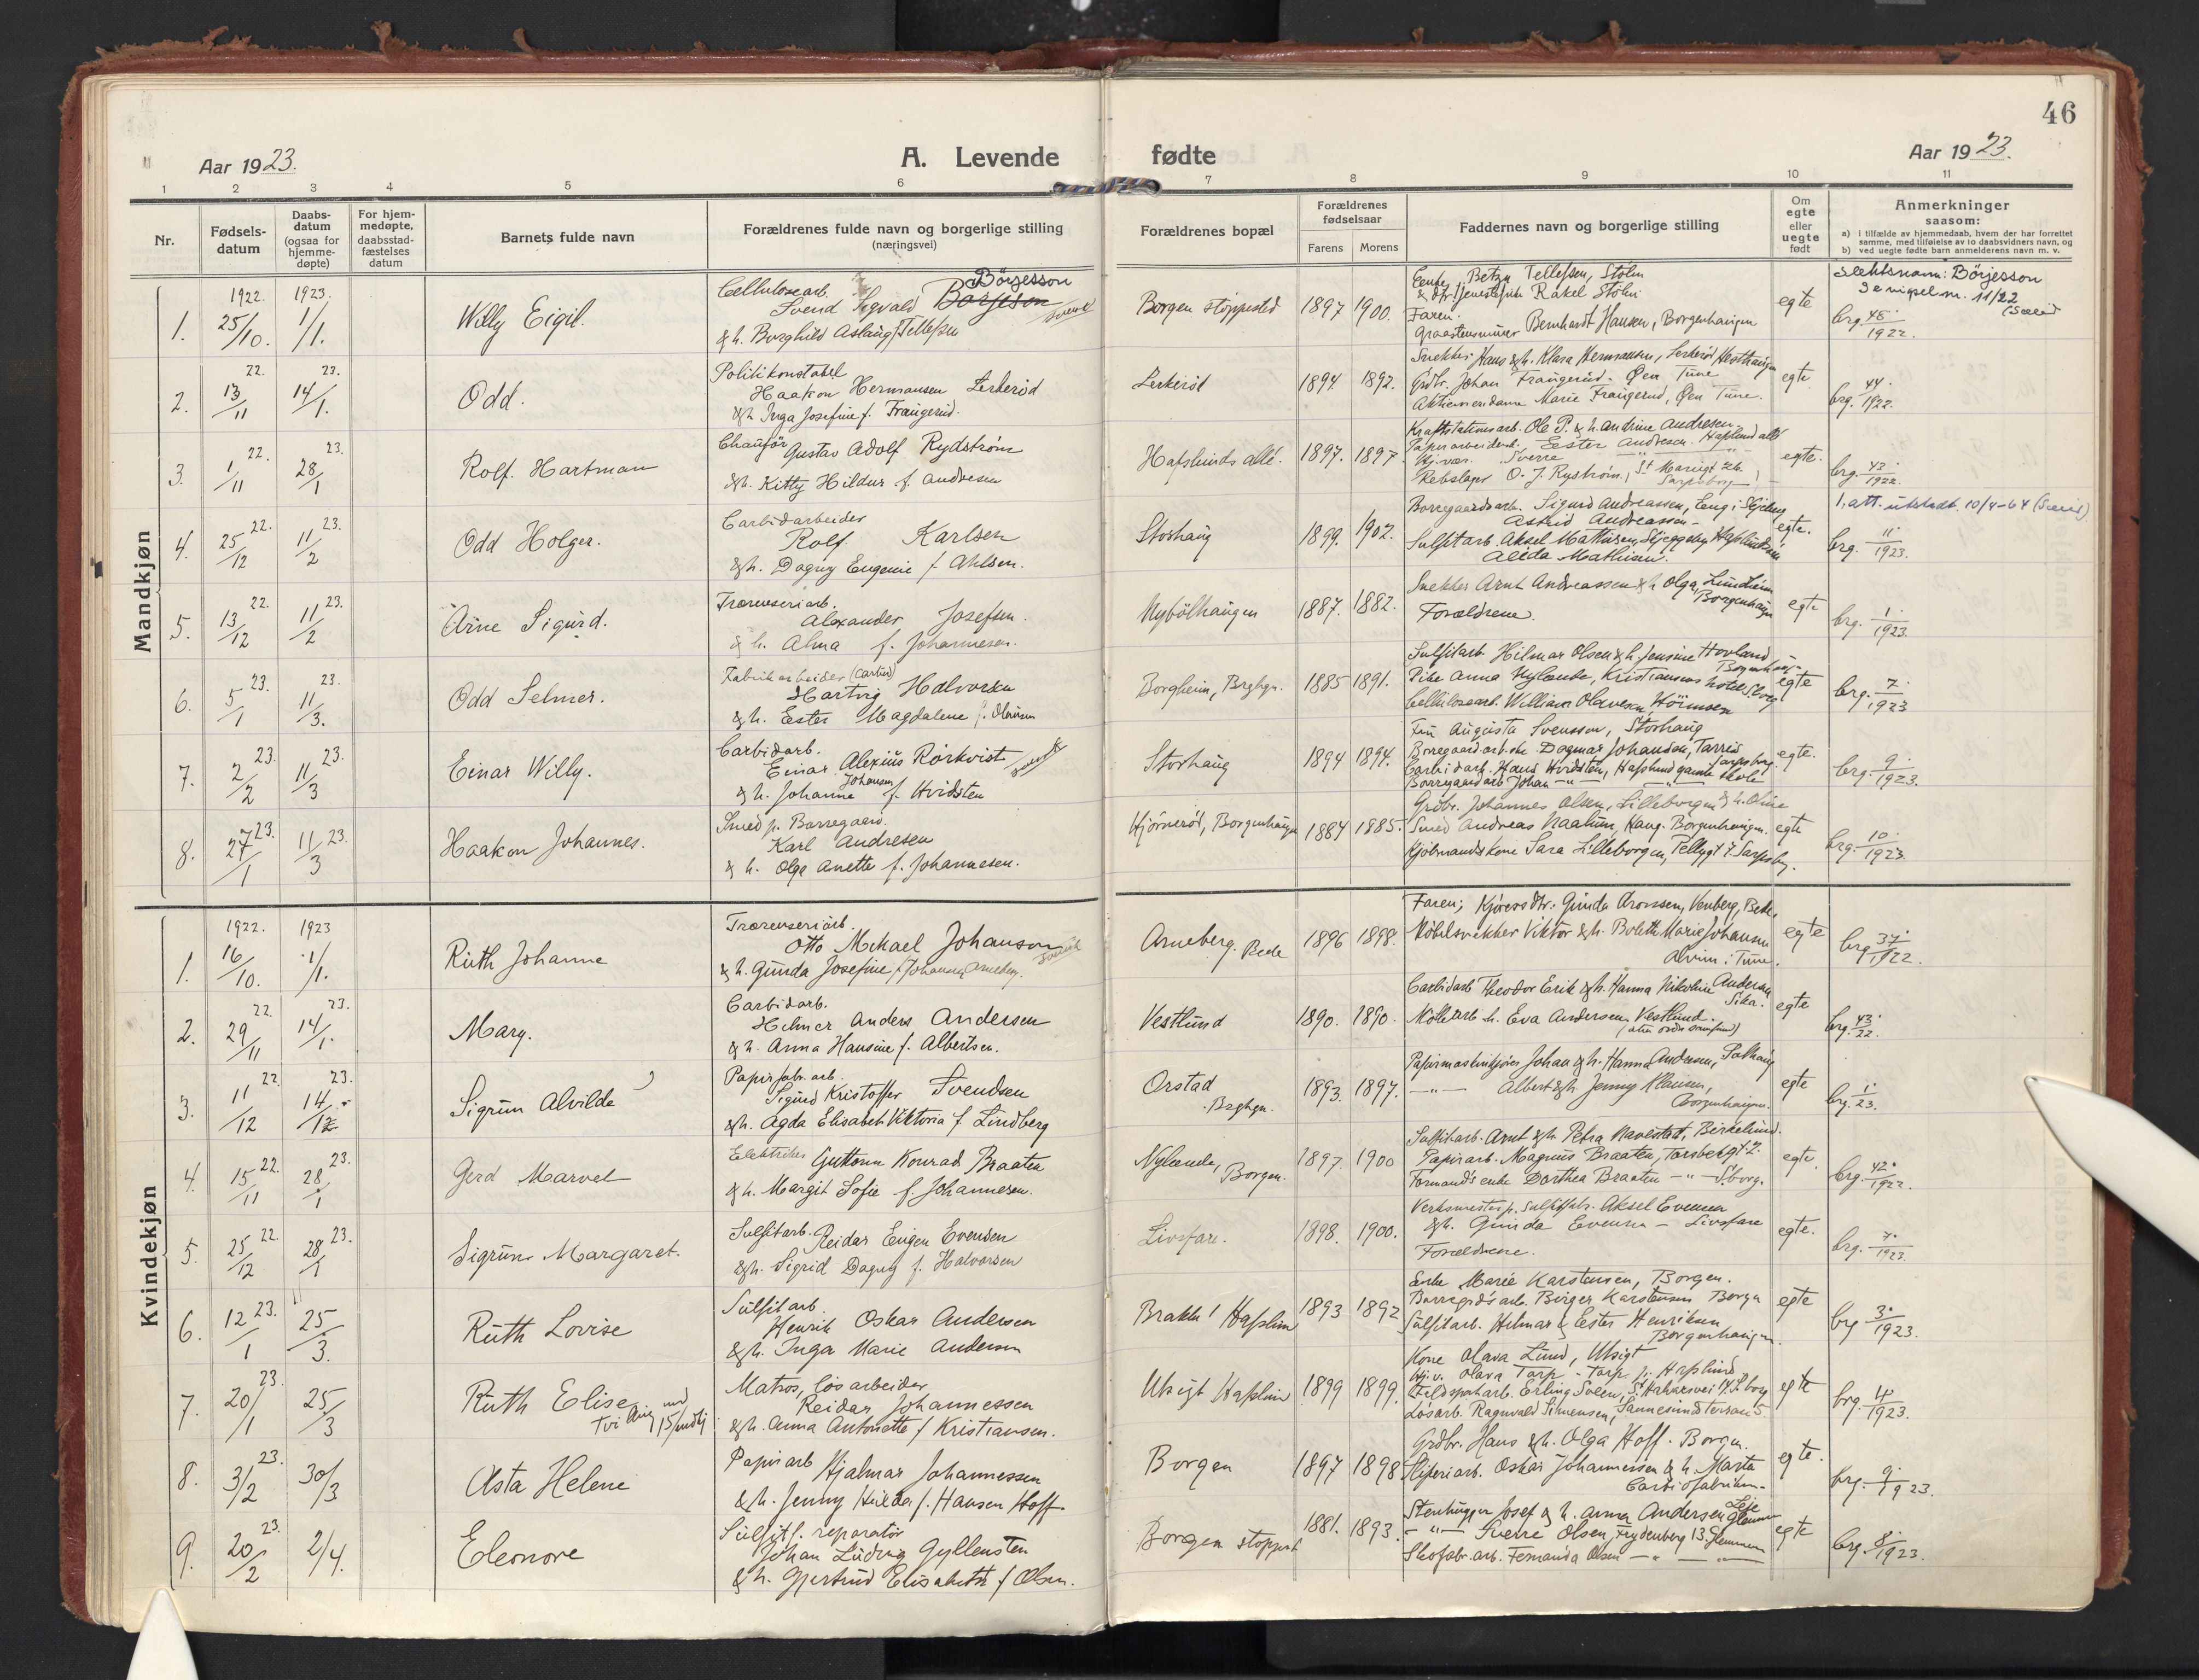 46
Aar 1923.
A. Levende fødte
Aar 1923.
1 2 3 4 5 6 7 8 9 10 11
Nr.
Fødsels-
datum
Daabs-
datum
(ogsaa for
hjemme-
døpte)
For hjem-
medøpte,
daabsstad-
fæstelses
datum
Barnets fulde navn
Forældrenes fulde navn og borgerlige stilling
(næringsvei)
Forældrenes bopæl
Forældrenes
fødselsaar
Farens Morens
Faddernes navn og borgerlige stilling
Om
egte
eller
uegte
født
Anmerkninger
saasom:
a) i tilfælde av hjemmedaab, hvem der har forrettet
samme, med tilføielse av to daabsvidners navn, og
b) ved uegte fødte barn anmelderens navn m. v.
Mandkjøn
1. 1922. 25/10. 1923. 1/1. Willy Eigil.
Cellulosearb. Börjesson
Svend Sigvald Borjeson svensk
& h. Borghild Aslaug f. Tellefsen
Borgen stoppested 1897 1900.
Enke Betzy Tellefsen, Stölen
Rakel Stölen
Faren.
Graastensmurer Bernhardt Hansen, Borgenhaugen
egte
Slektsnavn: Börjesson
11/22
brg. 45. 1922.
2. 22. 13/11 23. 14/1. Odd.
Politikonstabel
Haakon Hermansen Lerkerød
& h. Inga Josefine f. Frangerud.
Lerkerød 1894 1892.
Snekker Hans & h. Klara Hermansen, Lerkerød
Grdbr. Johan Frangerud. Øen Tune
Marie Frangerud, Øen Tune.
egte
brg. 44. 1922.
3. 22. 1/11 23. 28/1 Rolf. Hartman
Chaufför Gustav Adolf Rydström
& h. Kitty Hildur f. Andresen
Hafslunds allé. 1897. 1897
Kraftstationsarb. Ole P. & h. Andrine Andresen
Papirarbeiderske Ester Andresen. Hafslund allé
Hj. vær. Sverre
O. J. Ryström, St Mariegt 26. Sarpsborg
egte.
brg. 43. 1922.
4. 25/12 22. 11/2 23. Odd Holger.
Carbidarbeider
Rolf Karlsen
& h. Dagny Eugenie f Ahlsen.
Storhaug 1899. 1902.
Borregaardsarb. Sigurd Andreassen, Eng i Skjeberg
Astrid Andreassen -
Sulfitarb. Aksel Mathisen, Skjeggeby Hafslund
Alida Mathisen.
egte.
1. att. utstedt 10/4-64
brg. 11 1923.
5. 13/12 22. 11/2 23. Arne Sigurd.
Træreuseriarb.
Alexander Josefsen.
& h. Alma f. Johannesen.
Nybölhaugen 1887. 1882.
Snekker Arnt Andreassen & h Olga, Lundheim
Borgenhaugen
Forældrene.
egte
brg. 1. 1923.
6. 5/1 23. 11/3. 23. Odd Selmer.
Fabrikarbeider (carbid)
Hartvig Halvorsen
& h. Ester Magdalene f. Olausen
Borgheim, Brghgn. 1885 1891.
Sulfitarb. Hilmar Olsen & h. Jensine Hovland
Pike Anna Nylænde, Kristiansens hotel S.borg
Cellulosearb. William Olavesen
egte
brg. 7. 1923
7. 2/2 23. 11/3 23. Einar Willy.
Carbidarb.
Einar Alexius Rörkvist svensk
Johansen
& h. Johanne f. Hvidsten
Storhaug 1894 1894.
Fru Augusta Svensson, Storhaug
Dagmar Johansen, Tarris Sarpsborg
Carbidarb. Hans Hvidsten, Hafslund gamle skole
Borregaardarb Johan -"-
egte.
brg. 9. 1923.
8. 27/1 23. 11/3 23. Haakon Johannes.
Smed p. Borregaard.
Karl Andresen
& h. Olga Anette f. Johannesen.
Hjörneröd, Borgenhaugen 1884 1885.
Grdbr. Johannes Olsen, Lilleborgen & h. Oline
Smed Andreas Naalum, Haug. Borgenhaugen.
Kjöbmandskone Sara Lilleborgen, Pellygt 7. Sarpsborg.
egte
brg. 10. 1923.
Kvindekjøn
1. 1922. 16/10. 1923 1/1. Ruth Johanne
Træreuseriarb.
Otto Mikael Johanson svensk
& h. Gunda Josefine f Johansen Arneberg.
Arneberg. Bede 1896 1898.
Faren; Gunda Aronsen, Venberg, Bede.
Möbelsnekker Viktor & h. Bolette Marie Johansen
Alvim i Tune.
egte
brg 37. 1922.
2. 22. 29/11 23. 14/1. Mary.
Carbidarb.
Helmer Anders Andersen
& h. Anna Hansine f. Albertsen.
Vestlund 1890. 1890.
Carbidarb Theodor Erik & h. Hanna Nikoline Andersen
Mölle arb h. Eva Andersen Vestlund.
egte
brg. 43. 22.
3. 11/12 22. 23. 14/12 Sigrun Alvilde
Papirfabr. arb.
Sigurd Kristoffer Svendsen
& h. Agda Elisabeth Viktoria f Lindberg
Orstad Brghgn. 1893. 1897.
Papirmaskinkjörer Johan & h. Hanna Andersen, Solhaug
-"- Albert & h. Jenny Klausen,
Borgenhaugen.
egte
brg. 1. 23.
4. 15/11 22. 28/1 23. Gerd Marvel
Elektriker Guttorm Konrad Braaten
& h. Margit Sofie f. Johannesen.
Nylænde, Borgen. 1897 1900
Sulfitarb. Arnt & h Petra Navestad, Birkelund.
Papirarb. Magnus Braaten, Torsbekgt 2.
Formands enke Dorthea Braaten -"- S.borg.
egte.
brg. 42. 1922.
5. 25/12 22. 28/1 23. Sigrun Margaret.
Sulfitarb. Reidar Eugen Evensen
& h. Sigrid Dagny f. Halvorsen
Livsfare. 1898. 1900.
Verksmester p. sulfitfabr. Aksel Evensen
& h. Gunda Evensen - Livsfare
Forældrene.
egte.
brg. 7. 1923
6. 12/1 23. 25/3. Ruth Lovise
Sulfitarb.
Henrik Oskar Andersen
& h. Inga Marie Andersen
Brakke 1 Hafslund 1893 1892
Enke Marie Karstensen, Borgen.
Borregrds arb. Birger Karstensen Borgen
Sulfitarb. Hilmar & Ester Henriksen
Borgenhaugen.
egte
brg 3. 1923.
7. 20/1 23. 25/3 Ruth Elise
Tvilling
Matros, lösarbeider
Reidar Johannessen
& h. Anna Antonette f Kristiansen.
Utsigt Hafslund 1899 1899.
Kone Olava Lund, Utsigt
Hj.v. Olava Torp - Torp p. Hafslund
Feldspatharb. Erling Solem, St. Halvarsvei 17. S.borg
Lösarb. Ragnvald Simensen, Sannesundterrasse 5.
egte
brg. 4. 1923.
8. 3/2 23. 30/3 Asta Helene
Papirarb Hjalmar Johannessen
& h. Jenny Hilda f. Hansen Hoff
Borgen 1897 1898
Grdbr. Hans & h. Olga Hoff. Borgen.
Sliperiarb. Oskar Johannessen & h. Marta
Carbidfabriken.
egte.
brg. 9. 1923.
9. 20/2 23. 2/4. Eleonore
Sulfitf. reparatör
Johan Ludvig Gyllensten
& h. Gjertrud Elisabeth f Olsen.
Borgen stoppest 1881. 1893.
Stenhugger Josef & h. Anna Andersen Leie Glemmen
-"- Sverre Olsen, Frydenberg 13. Glemmen
Skofabr. arb. Fernanda Olsen -"-
egte
brg. 8. 1923.